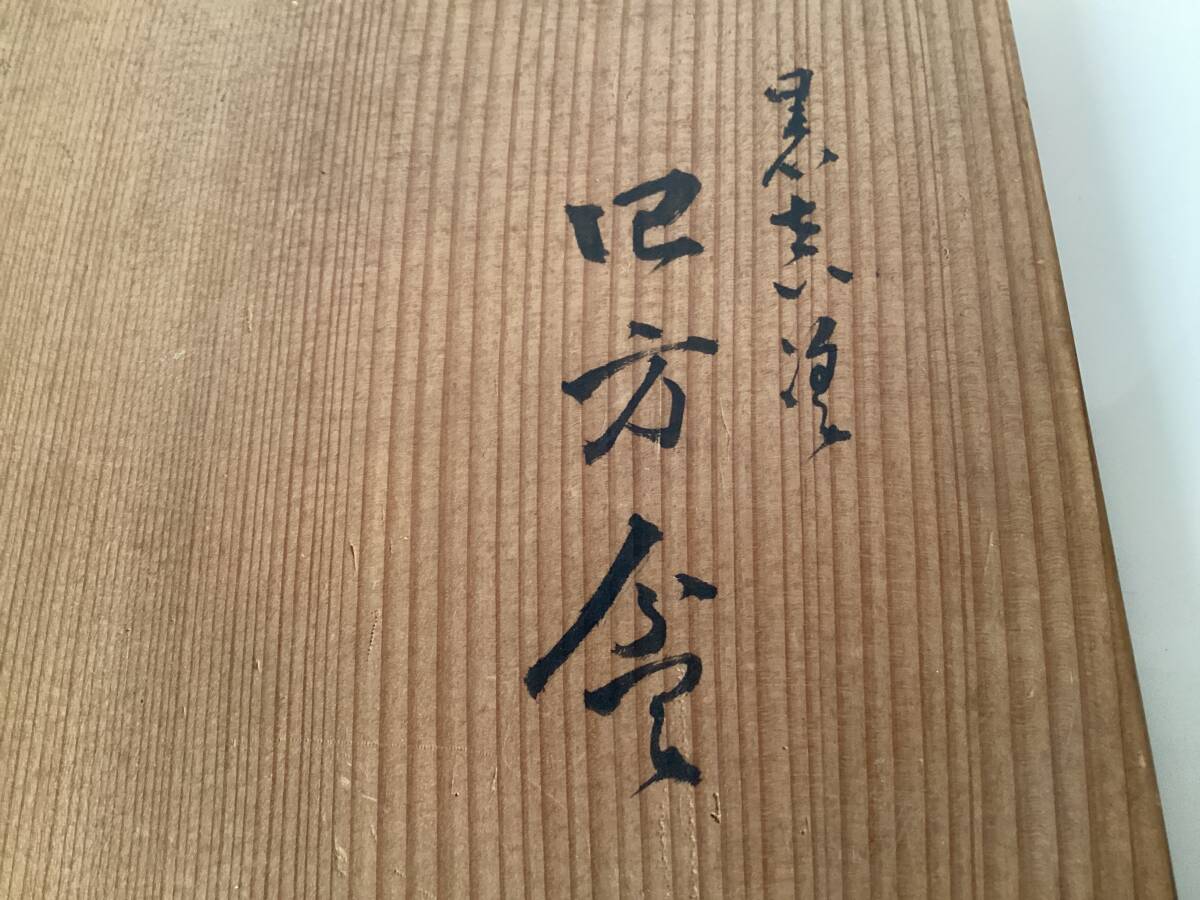 黒真塗
四方盆